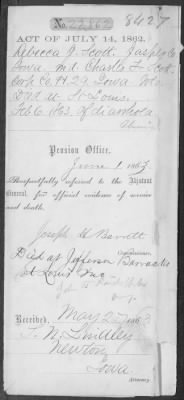 No. 22862
8427
ACT OF JULY 14, 1862.
Rebecca J. Scott, Jasper Co
Iowa, wid Charles F. Scott,
Corp Co. H. 29 Iowa Vols
Died at St Louis,
Feb 6 1863 of diarrhoea
Pension Office,
June 1, 1863
Respectfully referred to the Adjutant
General, for official evidence of service
and death.
Joseph H Barrett
Commissioner.
Died at Jefferson Barracks
St Louis Mo
Received, May 27 1863
Newton
Iowa.
Attorney.